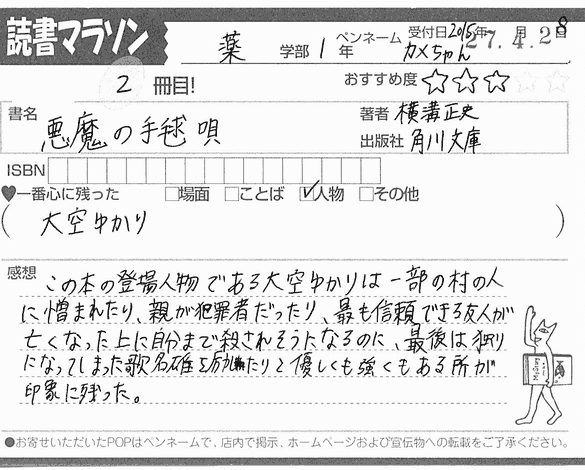 読書マラソン
薬 学部 1 年
ペンネーム カメちゃん
受付日 2015年 月 日
27.4.28
2 冊目!
おすすめ度 ☆☆☆☆☆
書名 悪魔の手毬唄
著者 横溝正史
出版社 角川文庫
ISBN
♥一番心に残った □場面 □ことば ☑人物 □その他
( 大空ゆかり )
感想
この本の登場人物である大空ゆかりは一部の村の人
に憎まれたり、親が犯罪者だったり、最も信頼できる友人が
亡くなった上に自分まで殺されそうになるのに、最後は独り
になってしまった歌名雄を励ましたりと優しくも強くもある所が
印象に残った。
●お寄せいただいたPOPはペンネームで、店内で掲示、ホームページおよび宣伝物への転載をご了承ください。